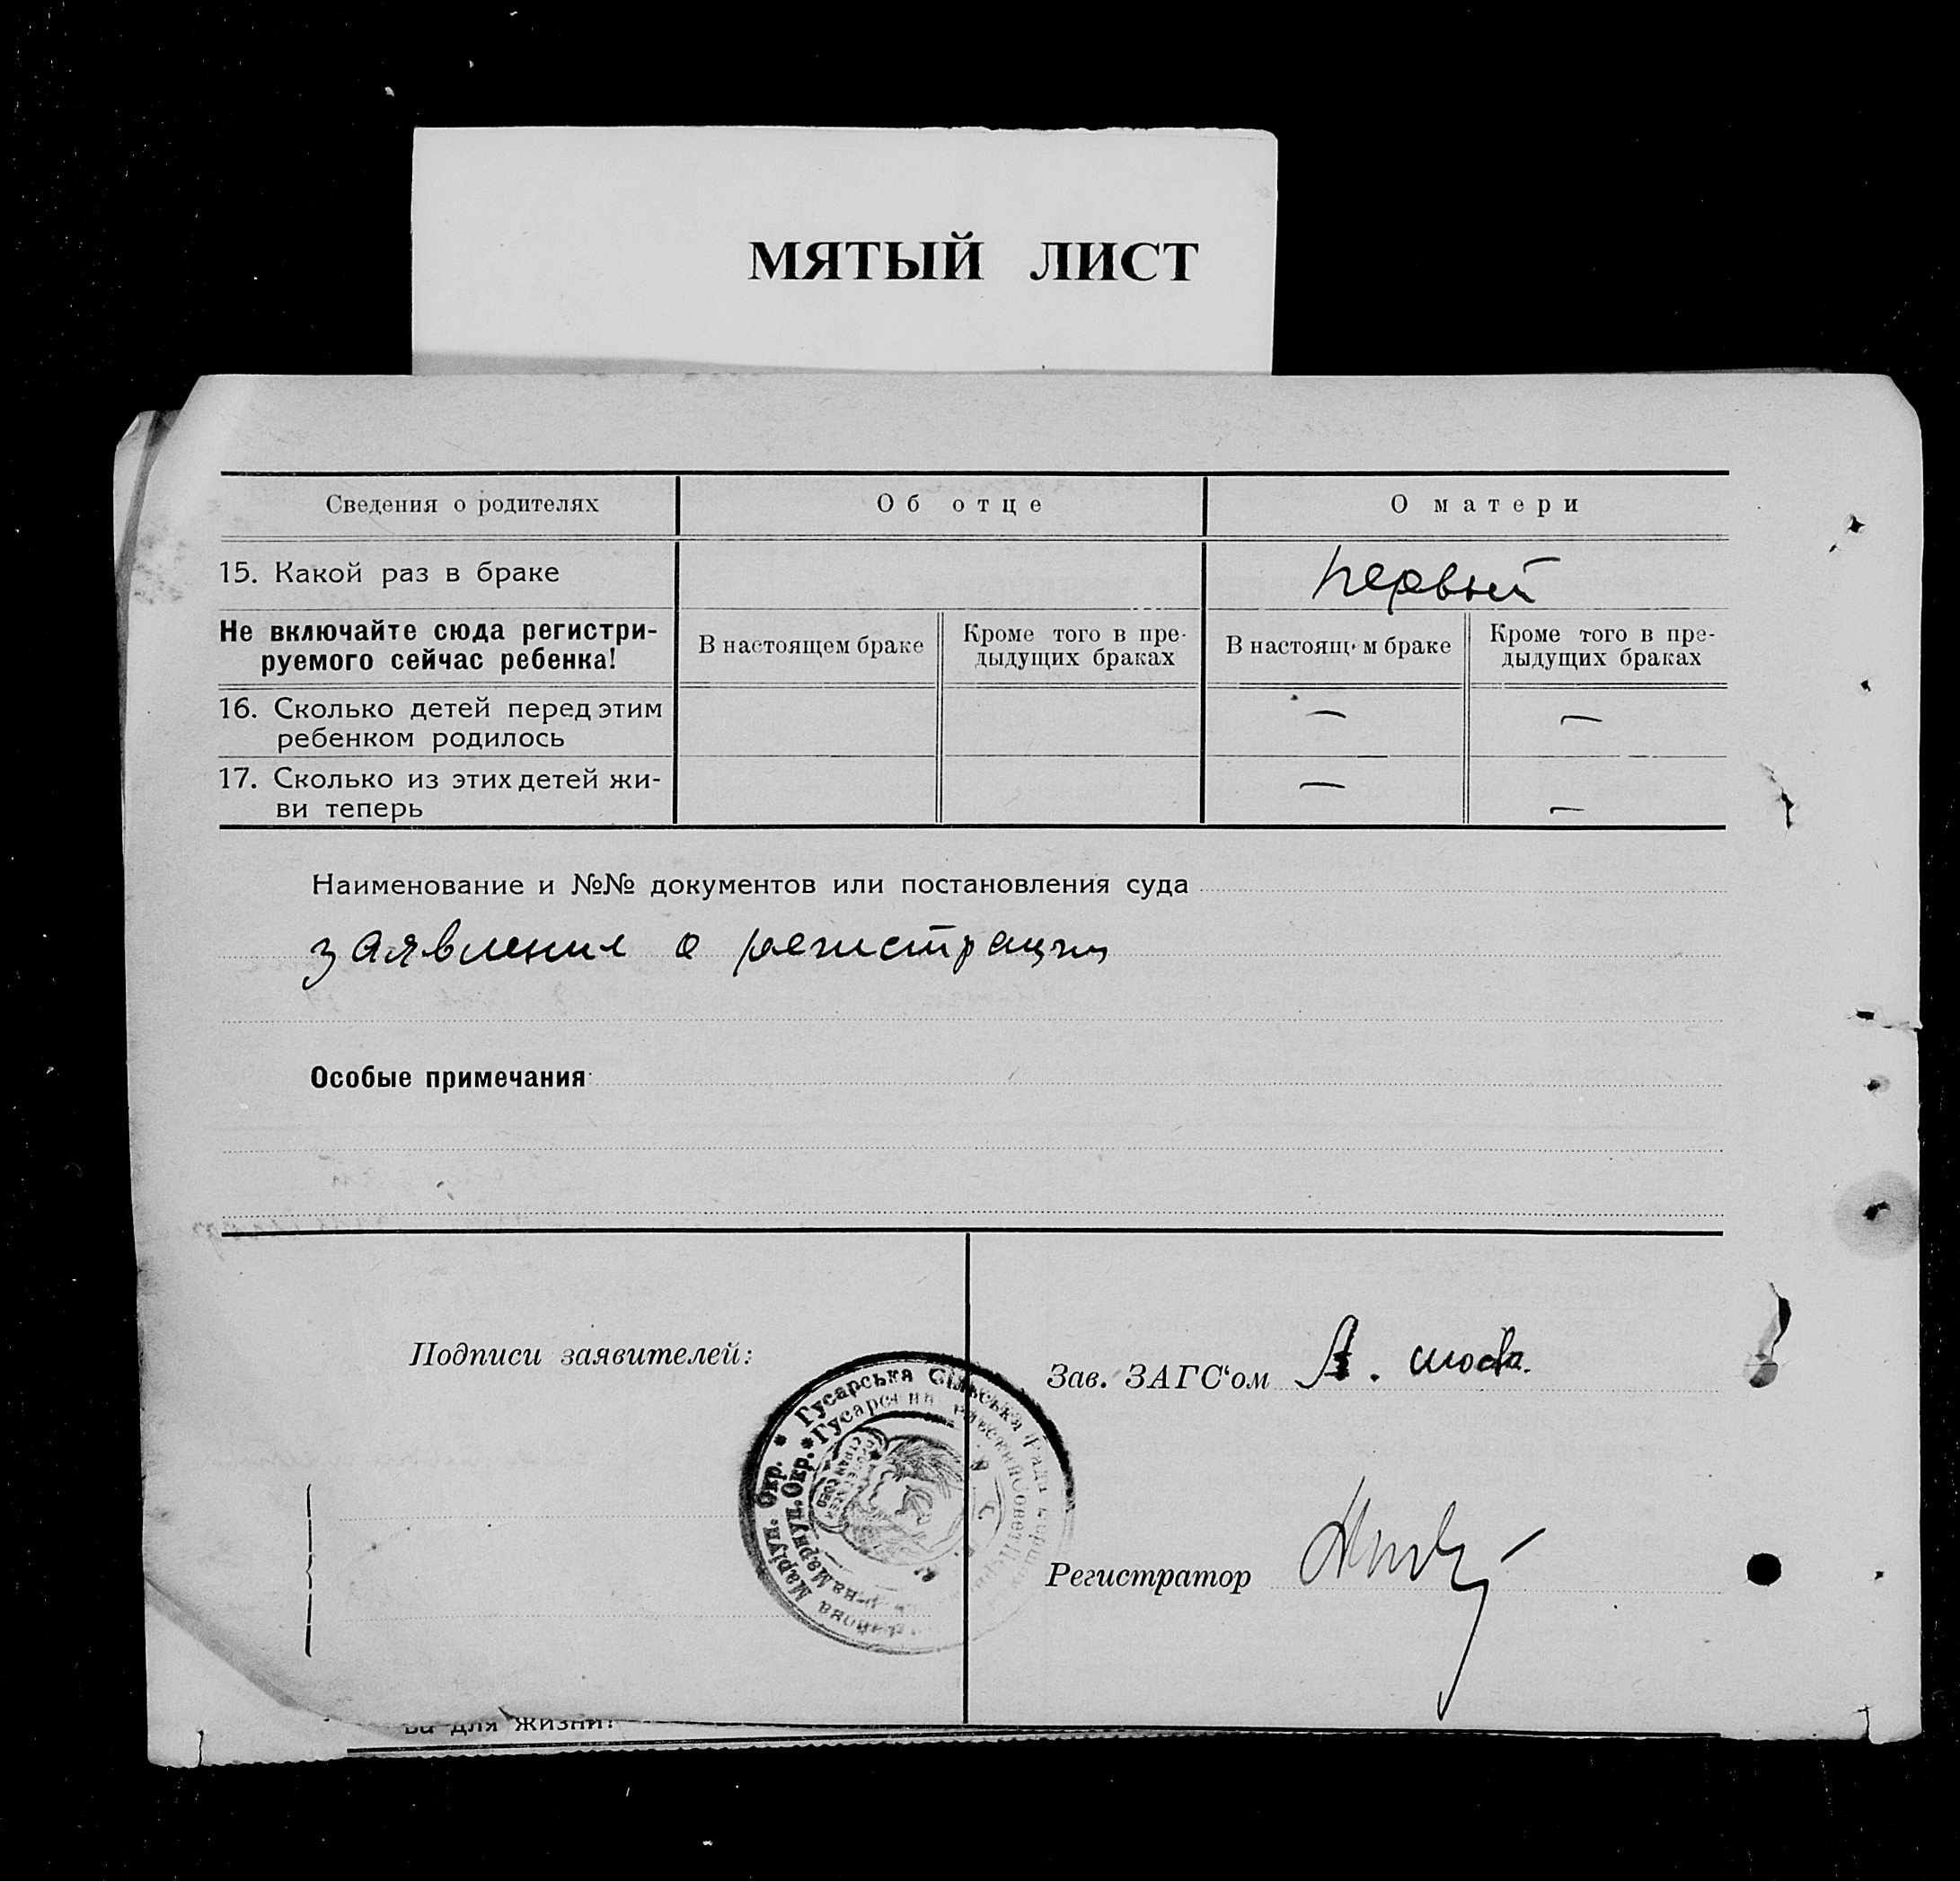 МЯТЫЙ ЛИСТ
Сведения о родителях
Об отце
О матери
15. Какой раз в браке
первый
Не включайте сюда регистри-
руемого сейчас ребенка!
В настоящем браке
Кроме того в пре-
дыдущих браках
В настоящ м браке
Кроме того в пре-
дыдущих браках
16. Сколько детей перед этим
ребенком родилось
—
—
17. Сколько из этих детей жи-
ви теперь
—
—
Наименование и №№ документов или постановления суда
заявление о регистрации
Особые примечания
Подписи заявителей:
Зав. ЗАГС'ом А.
Гусарська Сільська Рада
Маріуп. Окр.
Мариуп. Окр. * Гусарс
Регистратор
ва для жизни?